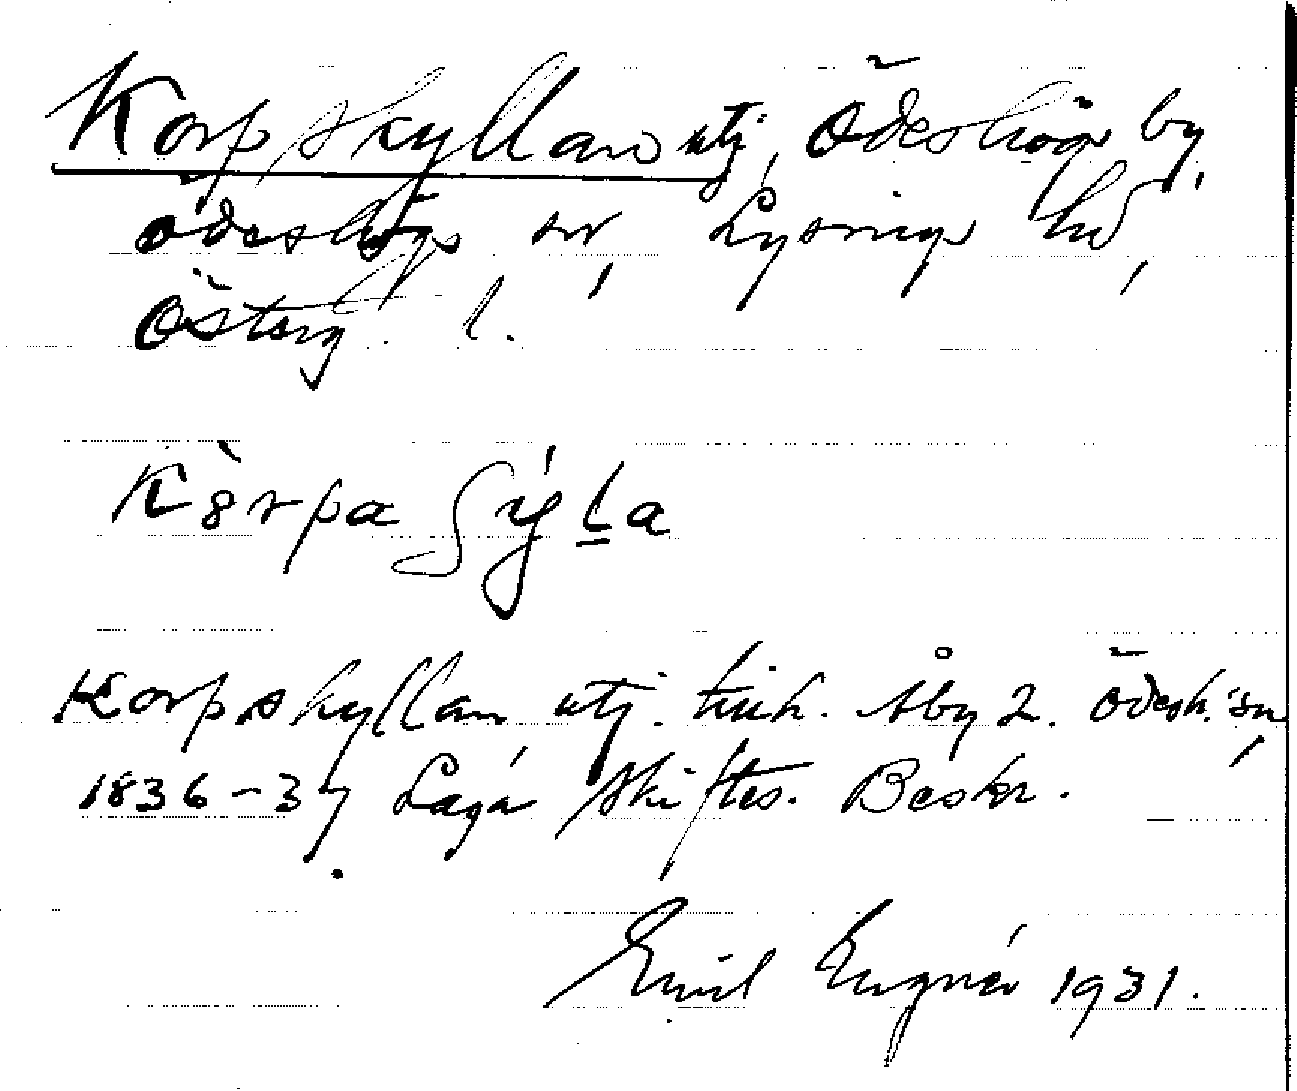 Korpskyllan utj, Ödeshög by,
Ödeshögs sn, Lysings hd,
Österg. l.
Korpskyllan utj. tillh. Åby 2. Ödesh. sn,
1836-37 Laga Skiftes. Beskr.
Emil Engnér 1931.